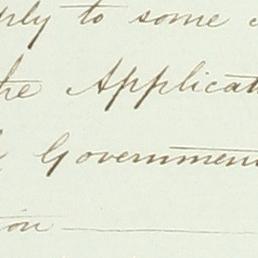 ply to some
the Applicat
Government
tion